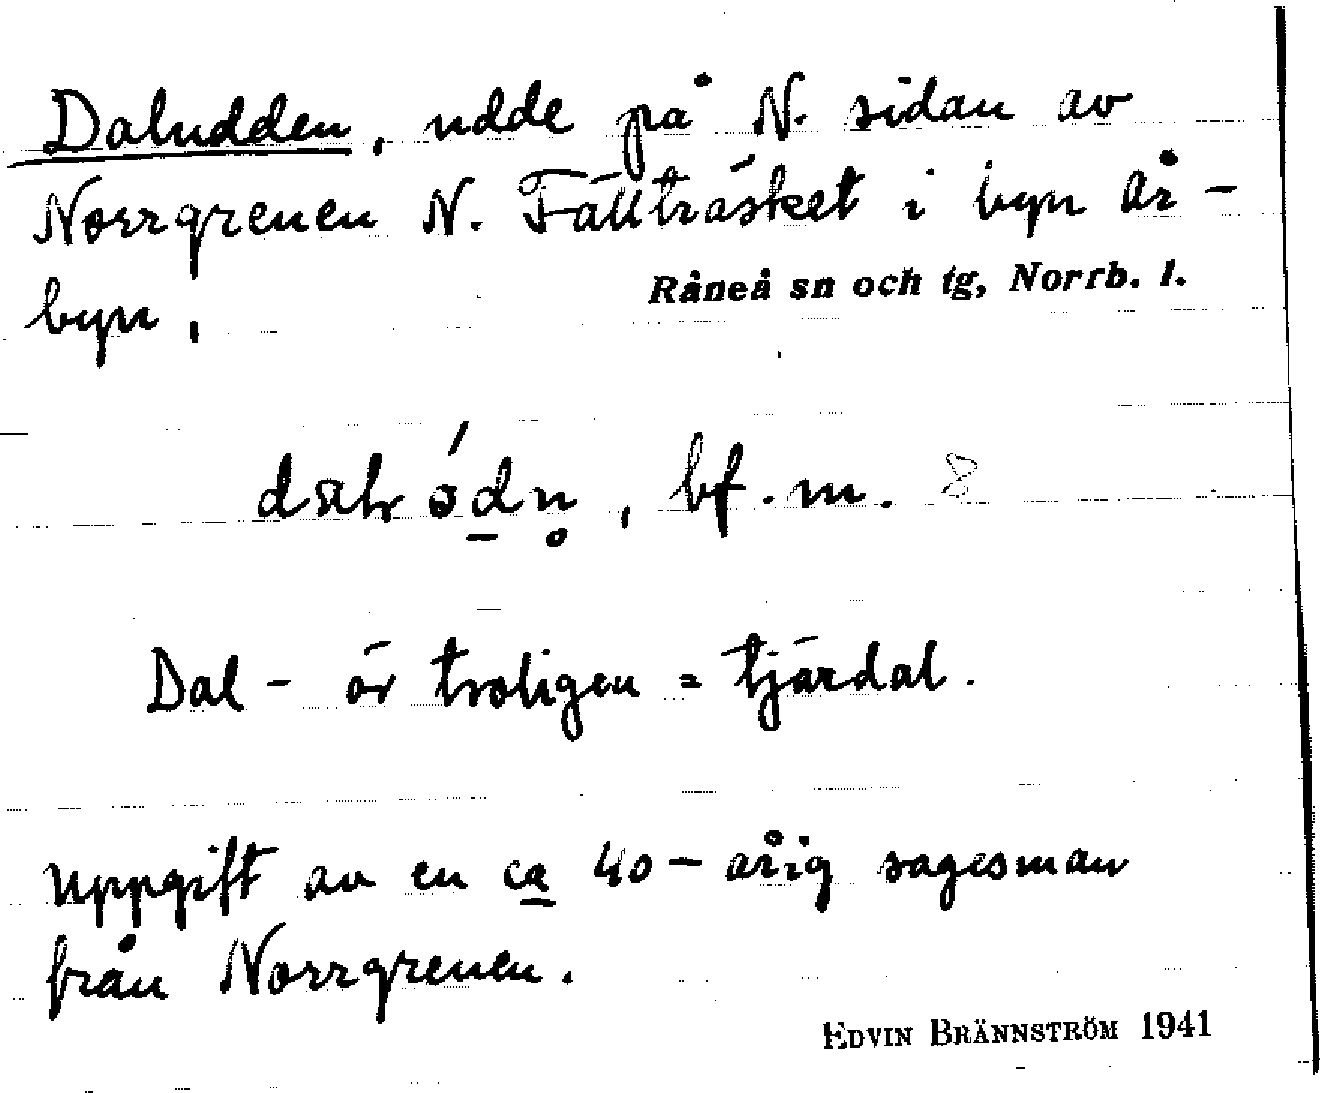 Daludden, udde på N. sidan av
Norrgrenen N. Fällträsket i byn År-
byn.
Råneå sn och tg, Norrb. l.
bf. m.
Dal- är troligen = tjärdal.
Uppgift av en ca 40-årig sagesman
från Norrgrenen.
EDVIN BRÄNNSTRÖM 1941